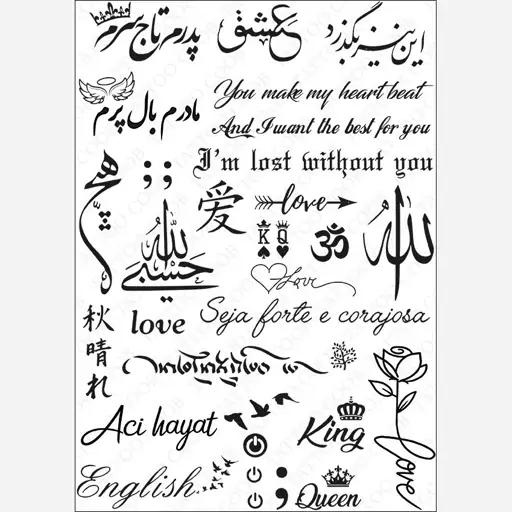 پدرم تاج سرم
عشق
این نیز بگذرد
مادرم بال پرم
You make my heart beat
And I want the best for you
I'm lost without you
هیچ
;
;
愛
love
الله
حسبي الله
K Q
ॐ
Love
秋晴れ
love
Seja forte e corajosa
Aci hayat
King
English
;
Queen
love